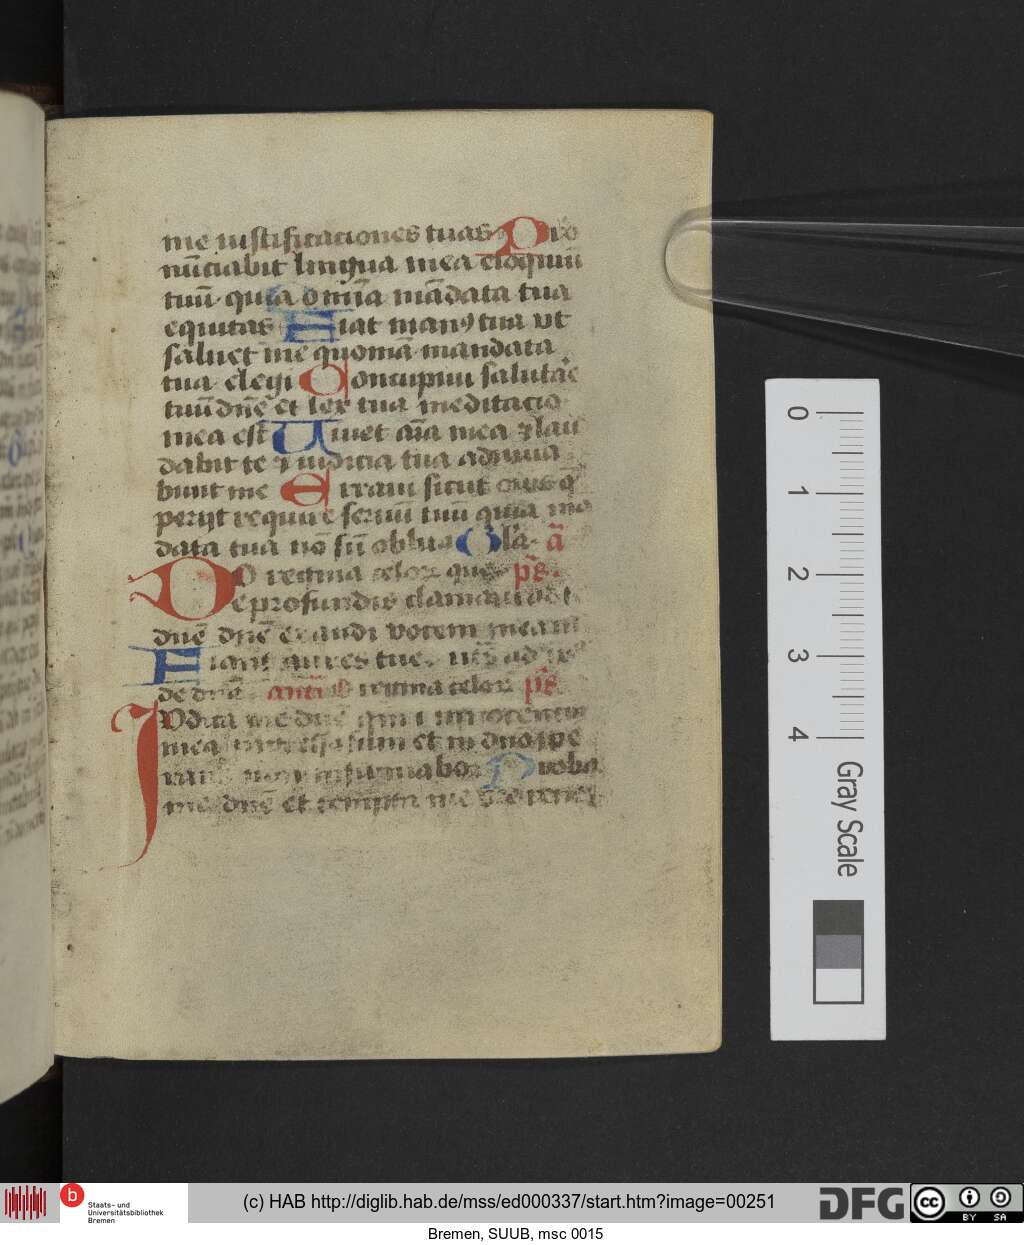 me iustificaciones tuas Pro
nūciabit lingua mea eloquiū
tuū quia omīa mādata tua
equitas Fiat manꝰ tua ut
saluet me quoniā mandata
tua elegi Concupiui salutāe
tuū dn̄e et lex tua meditacio
mea est Uiuet aīa mea ⁊ lau
dabit te ⁊ iudicia tua adiuua
bunt me Erraui sicut ouis q̄
perijt require seruū tuū quia mā
data tua nō sū oblitꝰ Gl'a. ā
O regina celoꝝ que pˢ.
De profundis clamaui ad te
dn̄e dn̄e exaudi vocem meam
Fiant aures tue.
de dn̄e antī O regina celoꝝ pˢ
Iudica me dn̄e qm̄ i innocentia
mea ingressꝰ sum et in dn̄o spe
rans non infirmabor Proba
me dn̄e et tempta me vre renes
0
1
2
3
4
Gray Scale
b
Staats- und
Universitätsbibliothek
Bremen
(c) HAB http://diglib.hab.de/mss/ed000337/start.htm?image=00251
DFG
cc BY SA
Bremen, SUUB, msc 0015